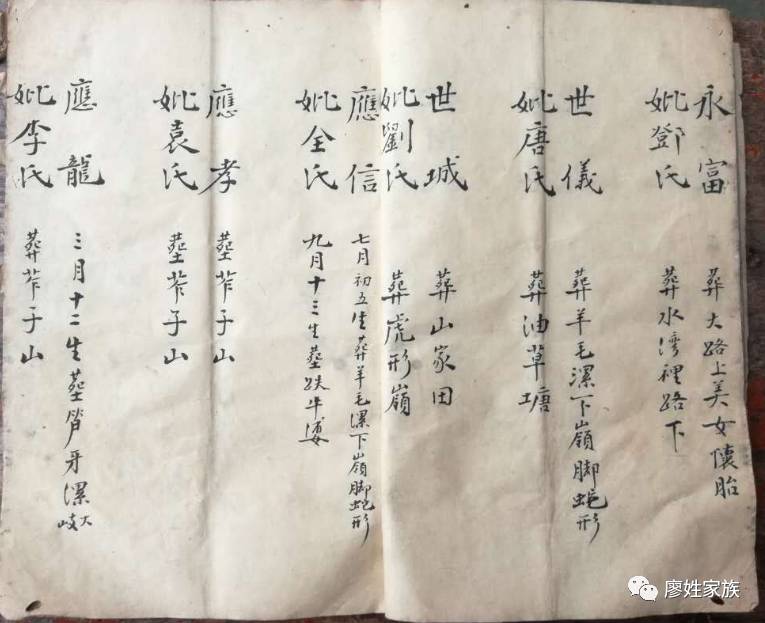 永富 葬大路上美女懷胎
妣鄧氏 葬水湾裡路下
世儀 葬羊毛漯下嶺脚蛇形
妣唐氏 葬油草塘
世城 葬山家田
妣劉氏 葬虎形嶺
應信 七月初五生葬羊毛漯下嶺脚蛇形
妣全氏 九月十三生塟跌牛
應孝 塟苲子山
妣袁氏 塟苲子山
應龍 三月十二生塟牙漯大岐
妣李氏 葬苲子山
廖姓家族